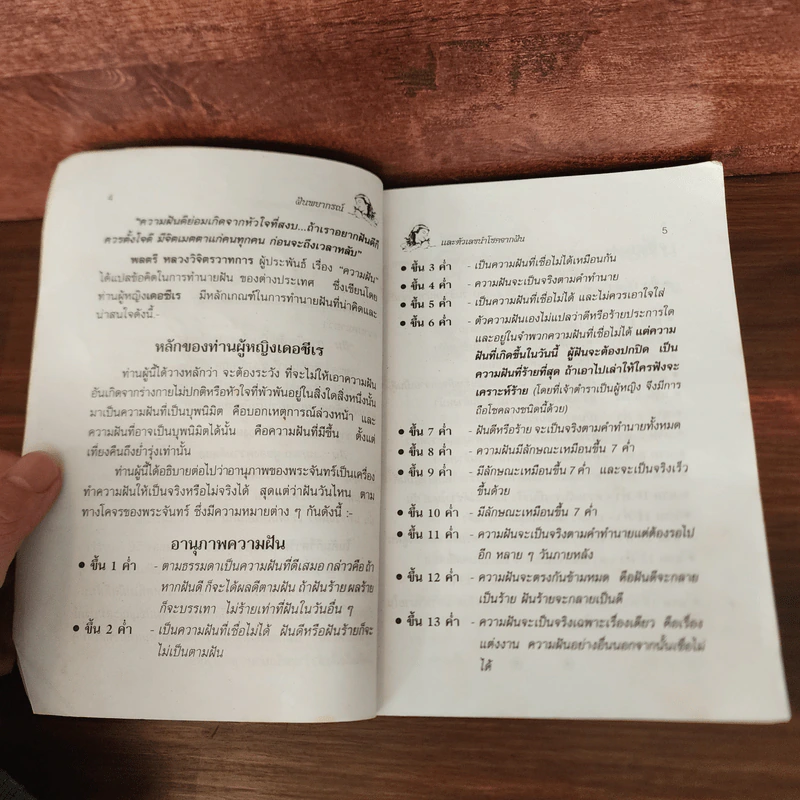 4
ฝันพยากรณ์
"ความฝันดีย่อมเกิดจากหัวใจที่สงบ...ถ้าเราอยากฝันดีก็
ควรตั้งใจดี มีจิตเมตตาแก่คนทุกคน ก่อนจะถึงเวลาหลับ"
พลตรี หลวงวิจิตรวาทการ ผู้ประพันธ์ เรื่อง "ความฝัน"
ได้แปลข้อคิดในการทำนายฝัน ของต่างประเทศ ซึ่งเขียนโดย
ท่านผู้หญิงเดอซีเร มีหลักเกณฑ์ในการทำนายฝันที่น่าคิดและ
น่าสนใจดังนี้.-
หลักของท่านผู้หญิงเดอซีเร
ท่านผู้นี้ได้วางหลักว่า จะต้องระวัง ที่จะไม่ให้เอาความฝัน
อันเกิดจากร่างกายไม่ปกติหรือหัวใจที่พัวพันอยู่ในสิ่งใดสิ่งหนึ่งนั้น
มาเป็นความฝันที่เป็นบุพนิมิต คือบอกเหตุการณ์ล่วงหน้า และ
ความฝันที่อาจเป็นบุพนิมิตได้นั้น คือความฝันที่มีขึ้น ตั้งแต่
เที่ยงคืนถึงย่ำรุ่งเท่านั้น
ท่านผู้นี้ได้อธิบายต่อไปว่าอานุภาพของพระจันทร์เป็นเครื่อง
ทำความฝันให้เป็นจริงหรือไม่จริงได้ สุดแต่ว่าฝันวันไหน ตาม
ทางโคจรของพระจันทร์ ซึ่งมีความหมายต่าง ๆ กันดังนี้ :-
อานุภาพความฝัน
● ขึ้น 1 ค่ำ - ตามธรรมดาเป็นความฝันที่ดีเสมอ กล่าวคือ ถ้า
หากฝันดี ก็จะได้ผลดีตามฝัน ถ้าฝันร้าย ผลร้าย
ก็จะบรรเทา ไม่ร้ายเท่าที่ฝันในวันอื่น ๆ
● ขึ้น 2 ค่ำ - เป็นความฝันที่เชื่อไม่ได้ ฝันดีหรือฝันร้ายก็จะ
ไม่เป็นตามฝัน
และตัวเลขนำโชคจากฝัน
5
● ขึ้น 3 ค่ำ - เป็นความฝันที่เชื่อไม่ได้เหมือนกัน
● ขึ้น 4 ค่ำ - ความฝันจะเป็นจริงตามคำทำนาย
● ขึ้น 5 ค่ำ - เป็นความฝันที่เชื่อไม่ได้ และไม่ควรเอาใจใส่
● ขึ้น 6 ค่ำ - ตัวความฝันเองไม่แปลว่าดีหรือร้ายประการใด
และอยู่ในจำพวกความฝันที่เชื่อไม่ได้ แต่ความ
ฝันที่เกิดขึ้นในวันนี้ ผู้ฝันจะต้องปกปิด เป็น
ความฝันที่ร้ายที่สุด ถ้าเอาไปเล่าให้ใครฟังจะ
เคราะห์ร้าย (โดยที่เจ้าตำราเป็นผู้หญิง จึงมีการ
ถือโชคลางชนิดนี้ด้วย)
● ขึ้น 7 ค่ำ - ฝันดีหรือร้าย จะเป็นจริงตามคำทำนายทั้งหมด
● ขึ้น 8 ค่ำ - ความฝันมีลักษณะเหมือนขึ้น 7 ค่ำ
● ขึ้น 9 ค่ำ - มีลักษณะเหมือนขึ้น 7 ค่ำ และจะเป็นจริงเร็ว
ขึ้นด้วย
● ขึ้น 10 ค่ำ - มีลักษณะเหมือนขึ้น 7 ค่ำ
● ขึ้น 11 ค่ำ - ความฝันจะเป็นจริงตามคำทำนายแต่ต้องรอไป
อีก หลาย ๆ วันภายหลัง
● ขึ้น 12 ค่ำ - ความฝันจะตรงกันข้ามหมด คือฝันดีจะกลาย
เป็นร้าย ฝันร้ายจะกลายเป็นดี
● ขึ้น 13 ค่ำ - ความฝันจะเป็นจริงเฉพาะเรื่องเดียว คือเรื่อง
แต่งงาน ความฝันอย่างอื่นนอกจากนั้นเชื่อไม่
ได้